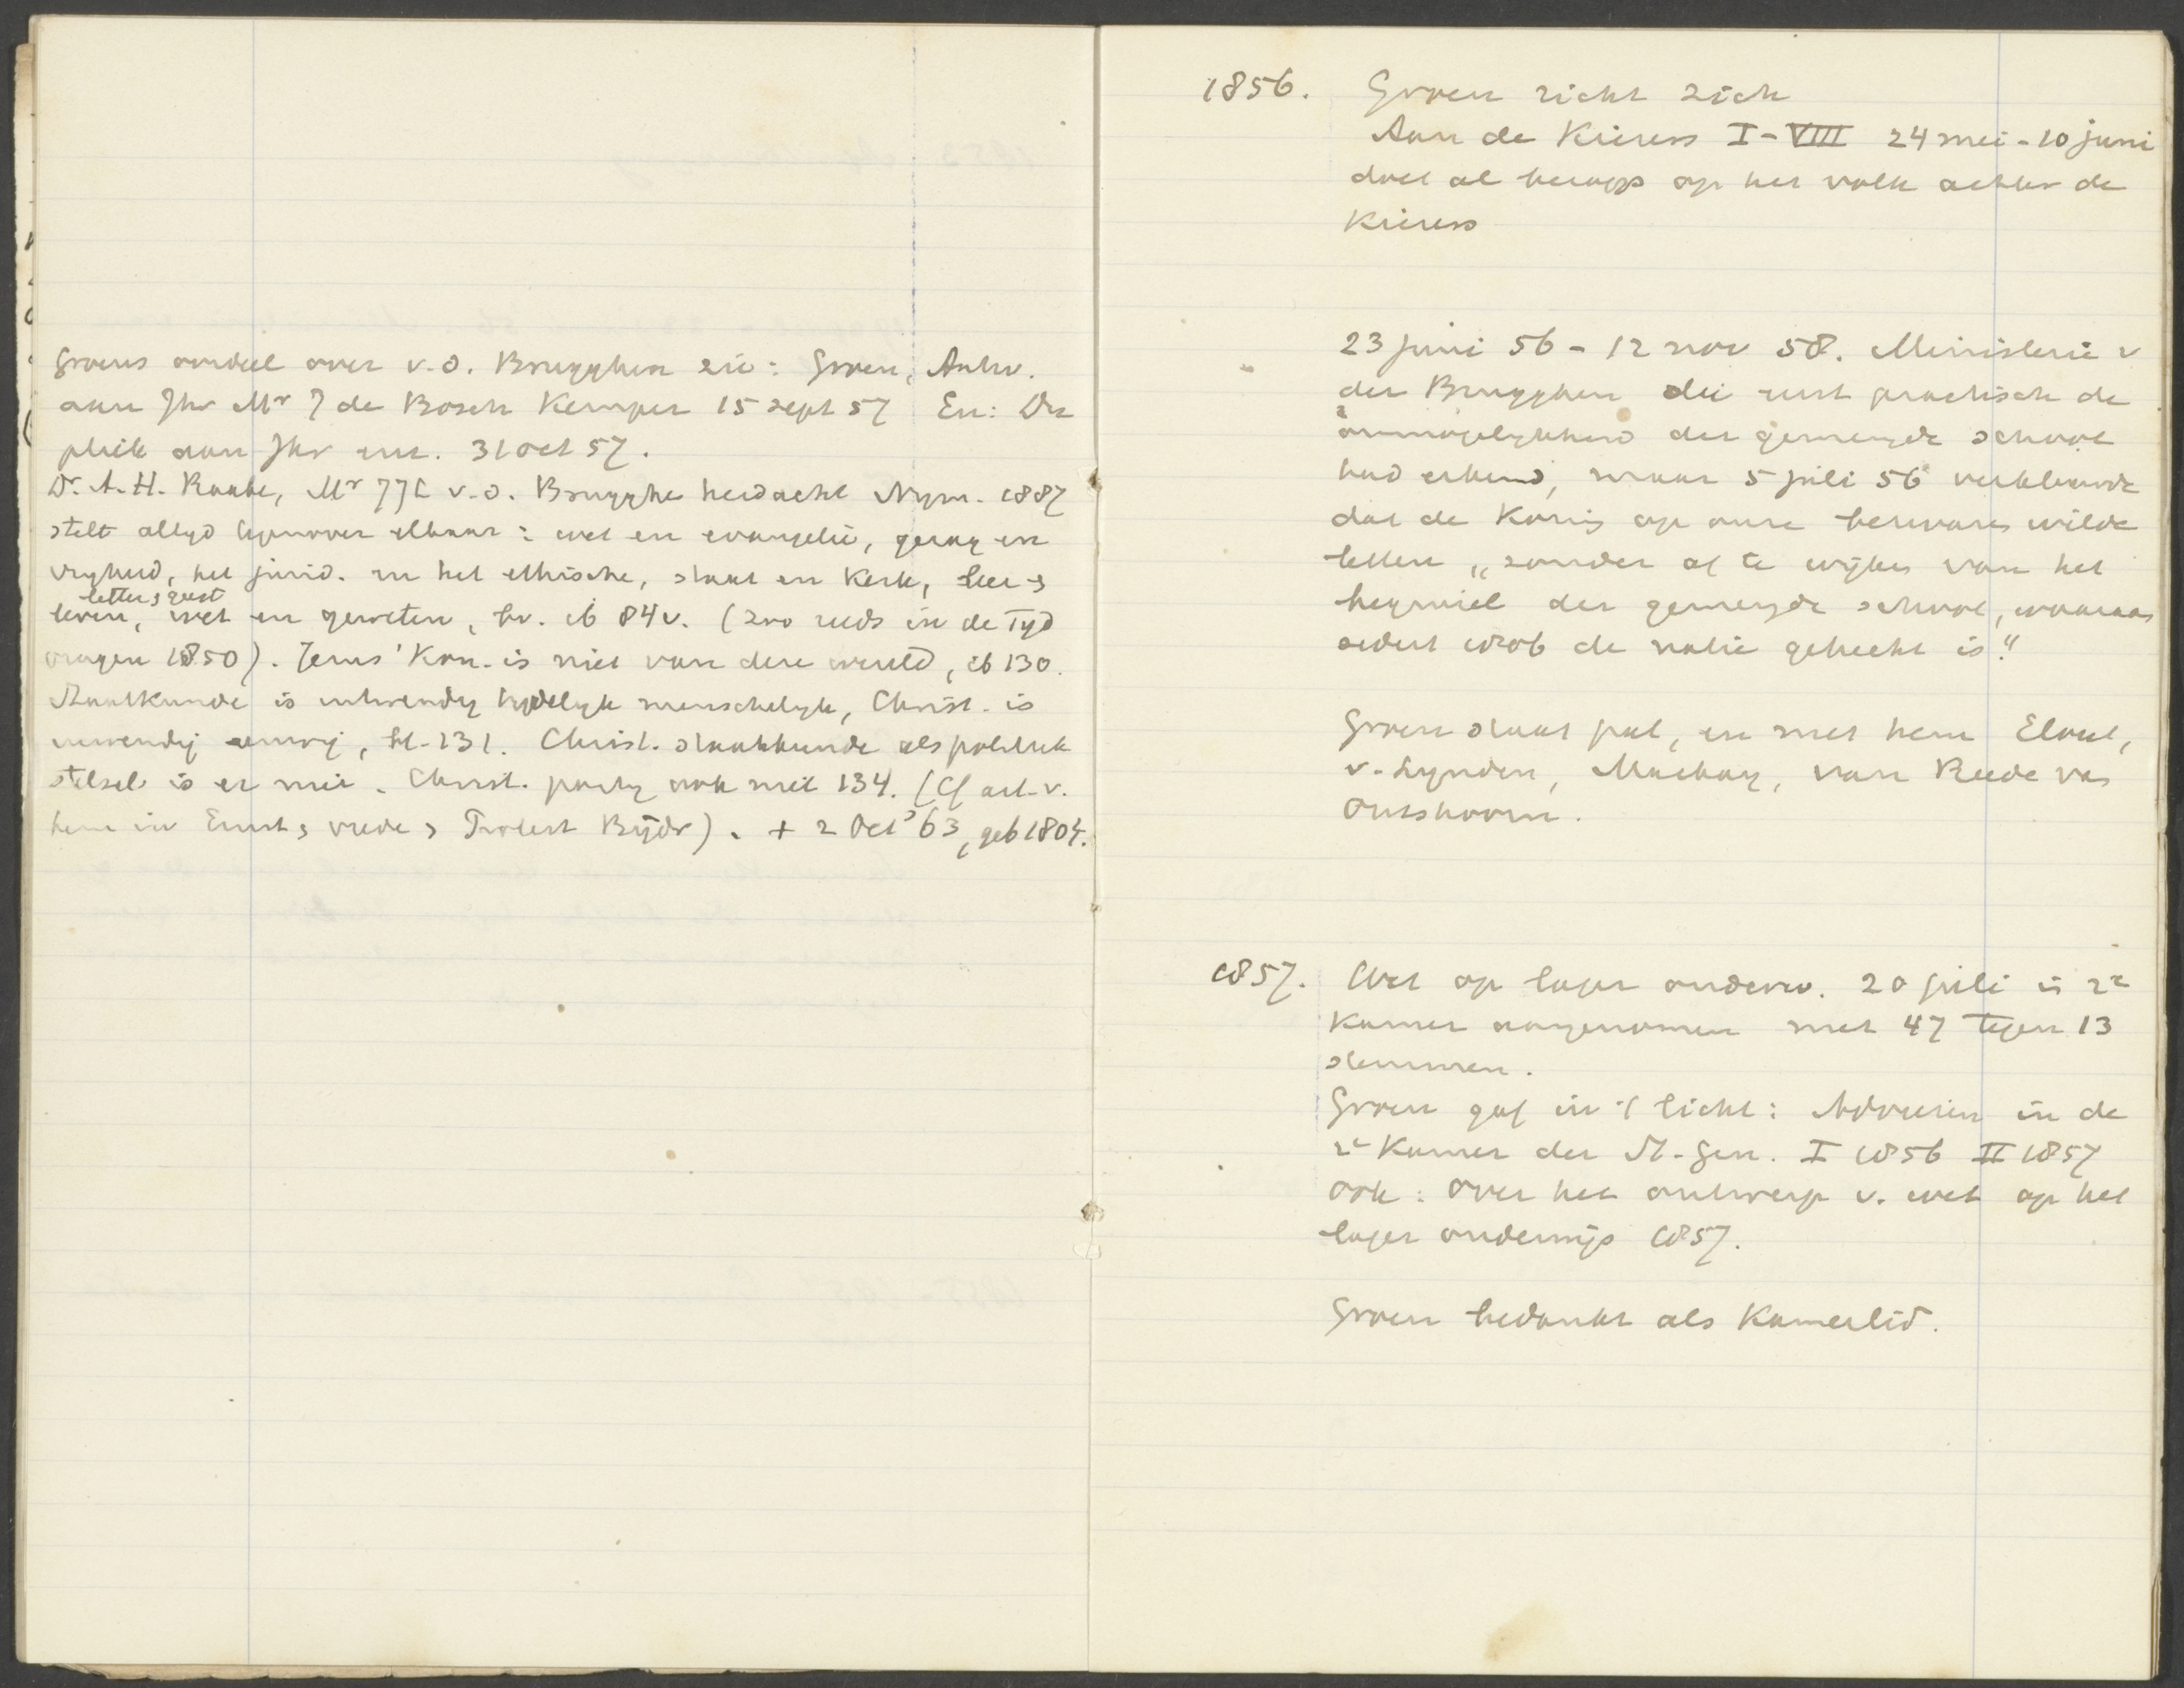 Groens oordeel over v.d. Brugghen zie: Groen, Antw.
aan Jhr Mr J de Bosch Kemper 15 sept 57 En: Du
pliek aan Jhr enz. 31 oct 57.
Dr. A.H. Raabe, Mr JJL v.d. Brugghe herdacht Nijm. 1887
stelt altyd tegenover elkaar: wet en evangelie, gezag en
vryheid, het jurid. en het ethische, staat en Kerk, leer en
letter en geest
leven, wet en geweten, bv. ib 84v. (zoo reeds in de Tyd
vragen 1850). Jezus' Kon. is niet van deze wereld, ib 130.
Staatkunde is uitwendig tydelyk menschelyk, Christ. is
inwendig eeuwig, bl. 131. Christ. staatkunde als politiek
stelsel is er niet. Christ. party ook niet 134. (Cf art. v.
hem in Ernst en vrede en Protest Bijdr). + 2 Oct '63, geb 1804.
1856. Groen richt zich
Aan de Kiezers I-VIII 24 mei - 10 juni
doet al beroep op het volk achter de
Kiezers
23 juni 56 - 12 nov 58. Ministerie v
der Brugghen die eerst practisch de
onmogelykheid der gemengde school
had erkend, maar 5 juli 56 verklaarde
dat de Koning op onze bezwaren wilde
letten „zonder af te wijken van het
beginsel der gemengde school, waaraan
sedert 1806 de natie gehecht is."
Groen staat pal, en met hem Elout,
v. Lynden, Mackay, van Reede van
Outshoorn.
1857. Wet op lager onderw. 20 juli in 2e
Kamer aangenomen met 47 tegen 13
stemmen.
Groen gaf in 't licht: Adviezen in de
2e Kamer der St.-Gen. I 1856 II 1857
ook: Over het ontwerp v. wet op het
lager onderwijs 1857.
Groen bedankt als Kamerlid.